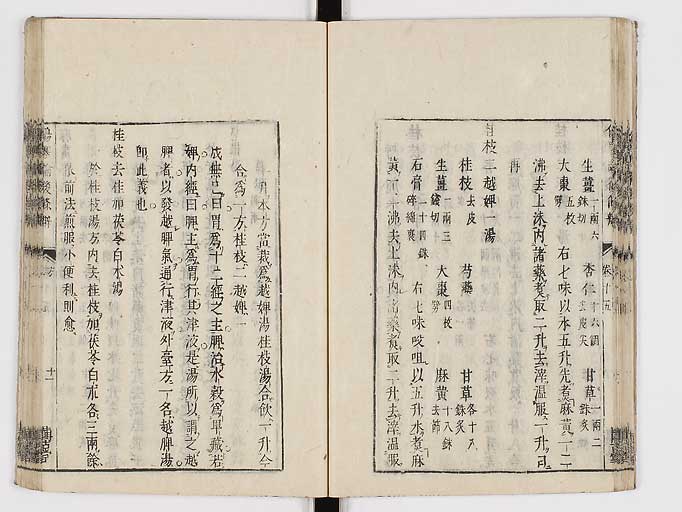 生薑一兩六銖切 杏仁十六個去皮尖 甘草一兩二銖炙
大棗五枚劈 右七味以水五升先煮麻黃一二
沸去上沫內諸藥煮取二升去滓溫服一升司
再
桂枝二越婢一湯
桂枝去皮 芍藥 甘草各十八銖炙
生薑一兩三錢切 大棗四枚劈 麻黃十八銖去節
石膏二十四銖碎綿裹 右七味㕮咀以五升水煮麻
黃一二沸去上沫內諸藥煮取二升去滓溫服
一升本方當裁爲越婢湯桂枝湯合飲一升今
合爲一方桂枝二越婢一
成無已曰胃爲十二經之主脾治水穀爲卑藏若
婢內經曰脾主爲胃行其津液是湯所以謂之越
脾者以發越脾氣通行津液外臺方一名越脾湯
卽此義也
桂枝去桂加茯苓白朮湯
於桂枝湯方內去桂枝加茯苓白朮各三兩餘
依前法煎服小便利則愈